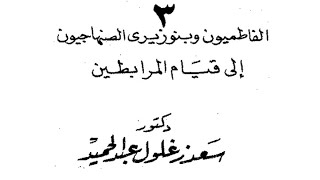 ٣
الفاطميون وبنوزيرى الصنهاجيون
إلى قيام المرابطين
دكتور
سعد زغلول عبد الحميد